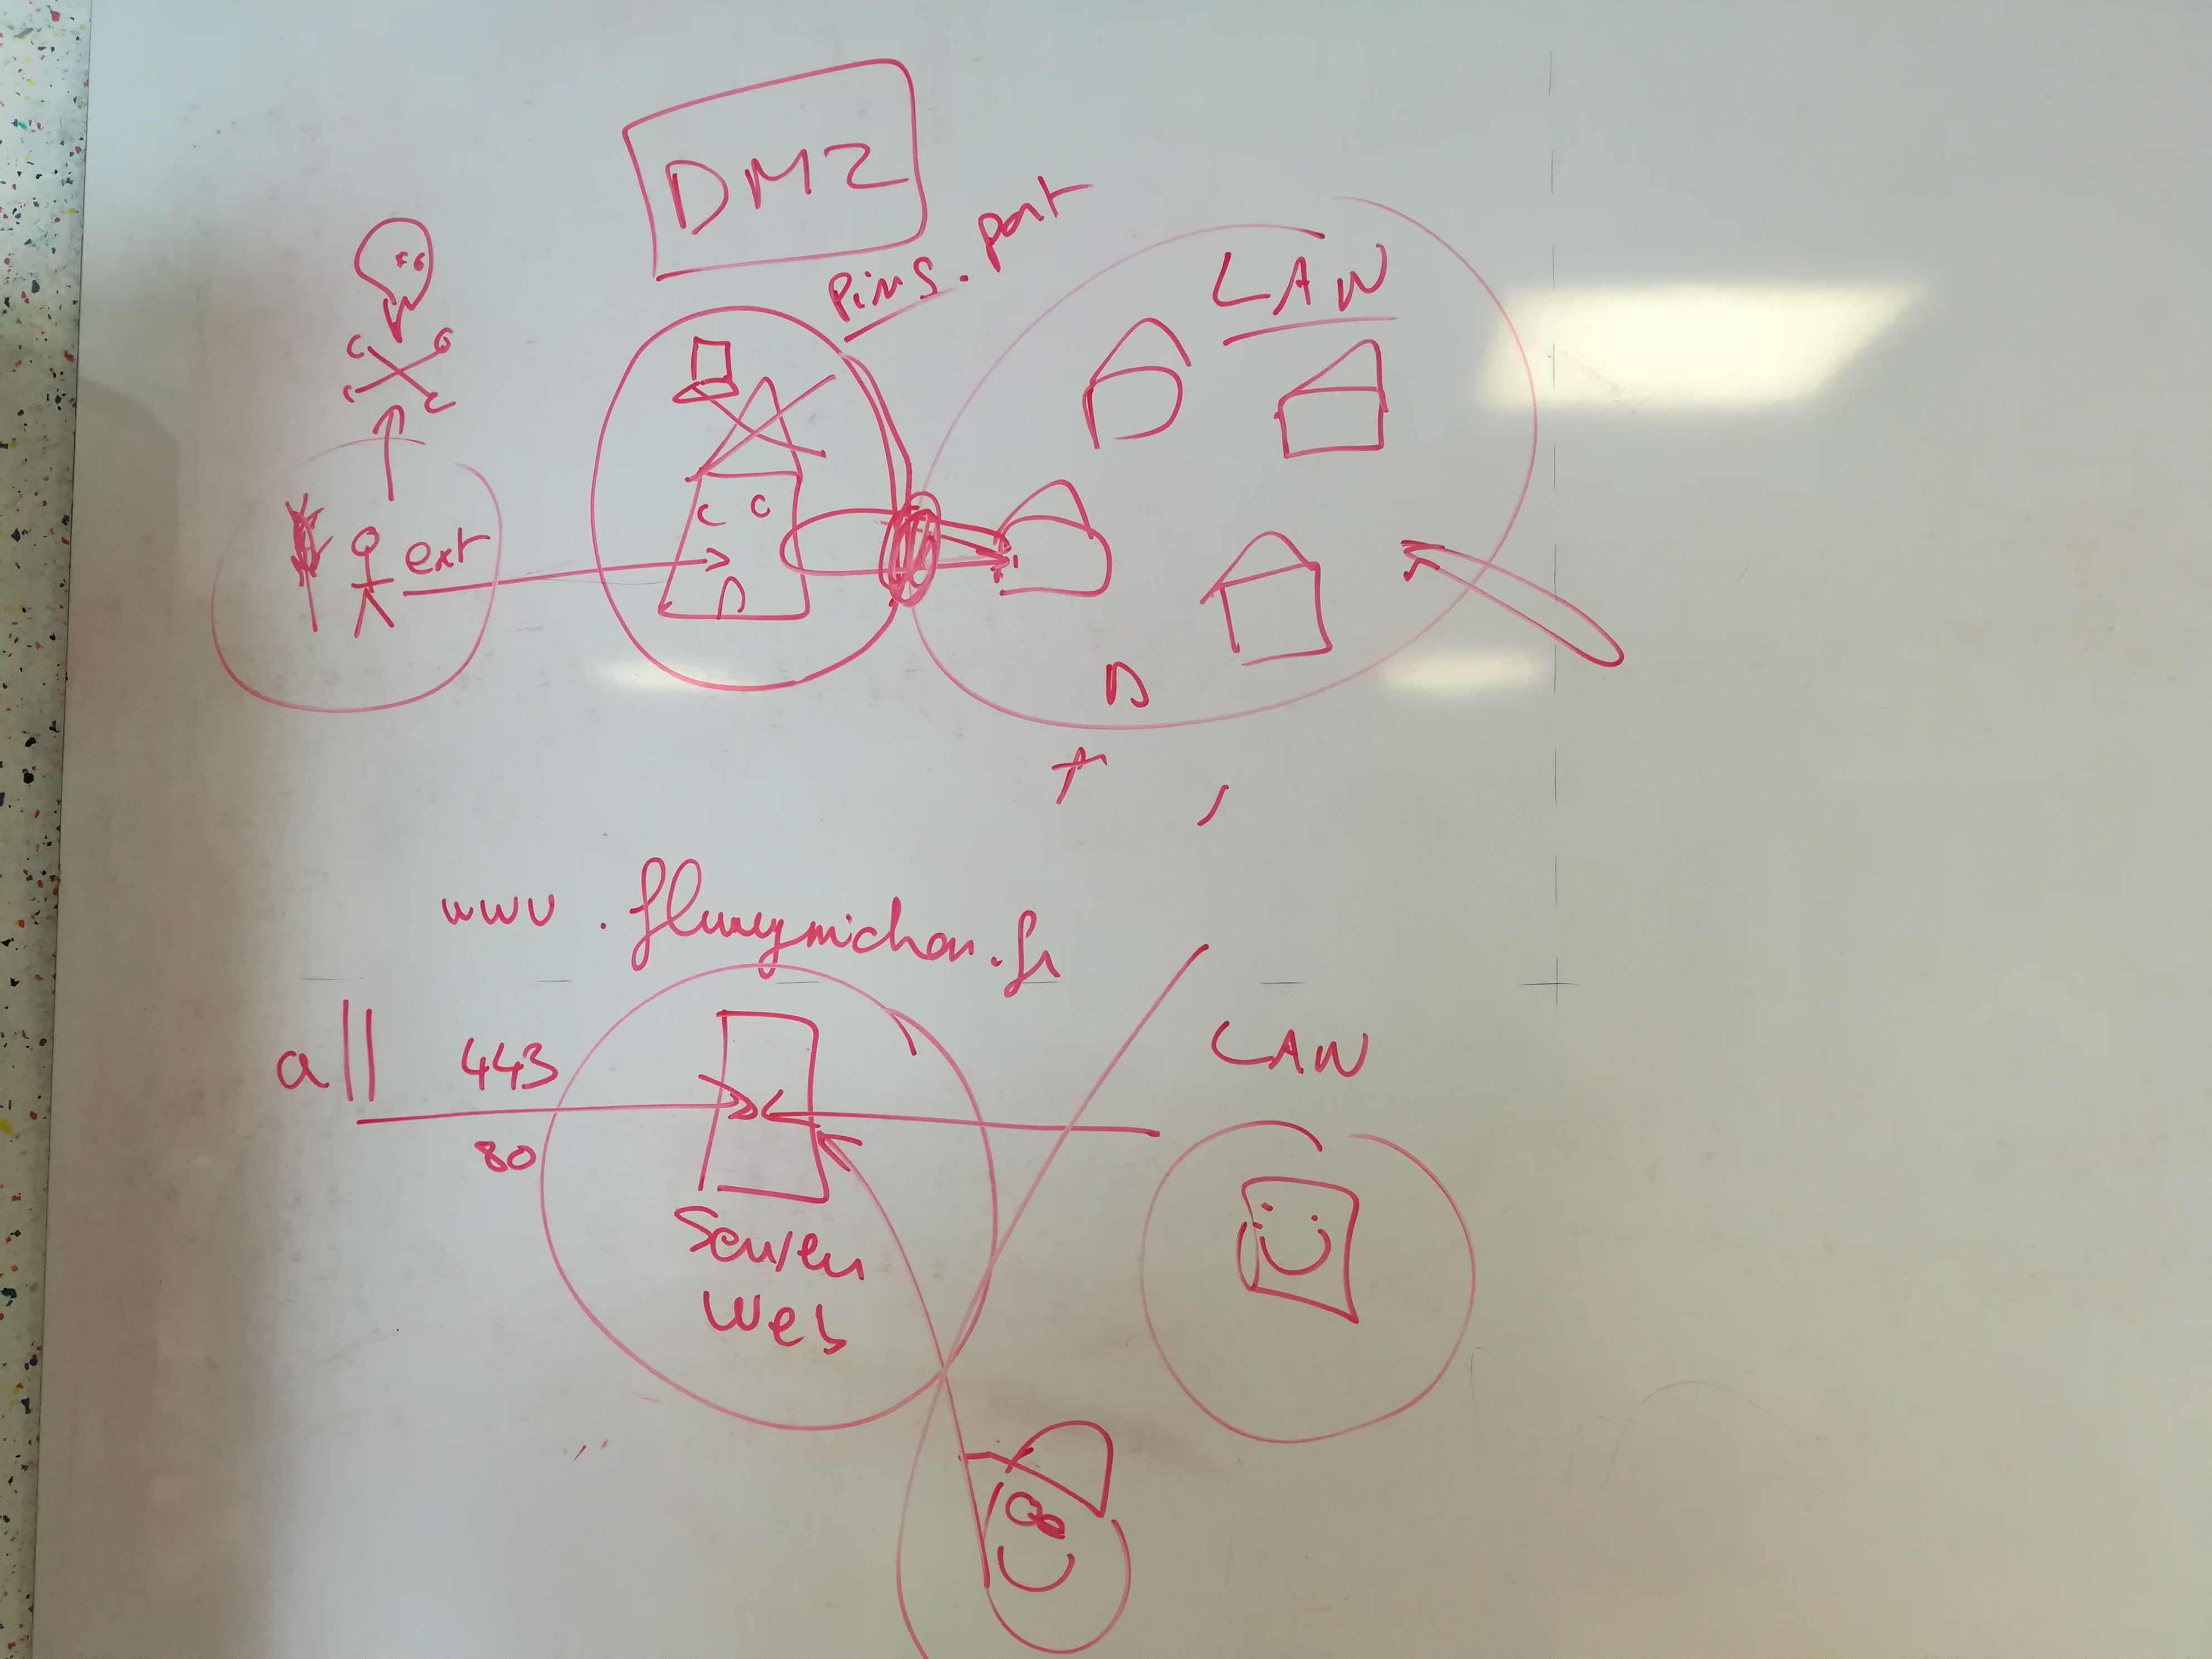 DMZ
Pins. port
LAN
ext
www.fleurymichon.fr
all 443
80
LAN
Serveur
Web